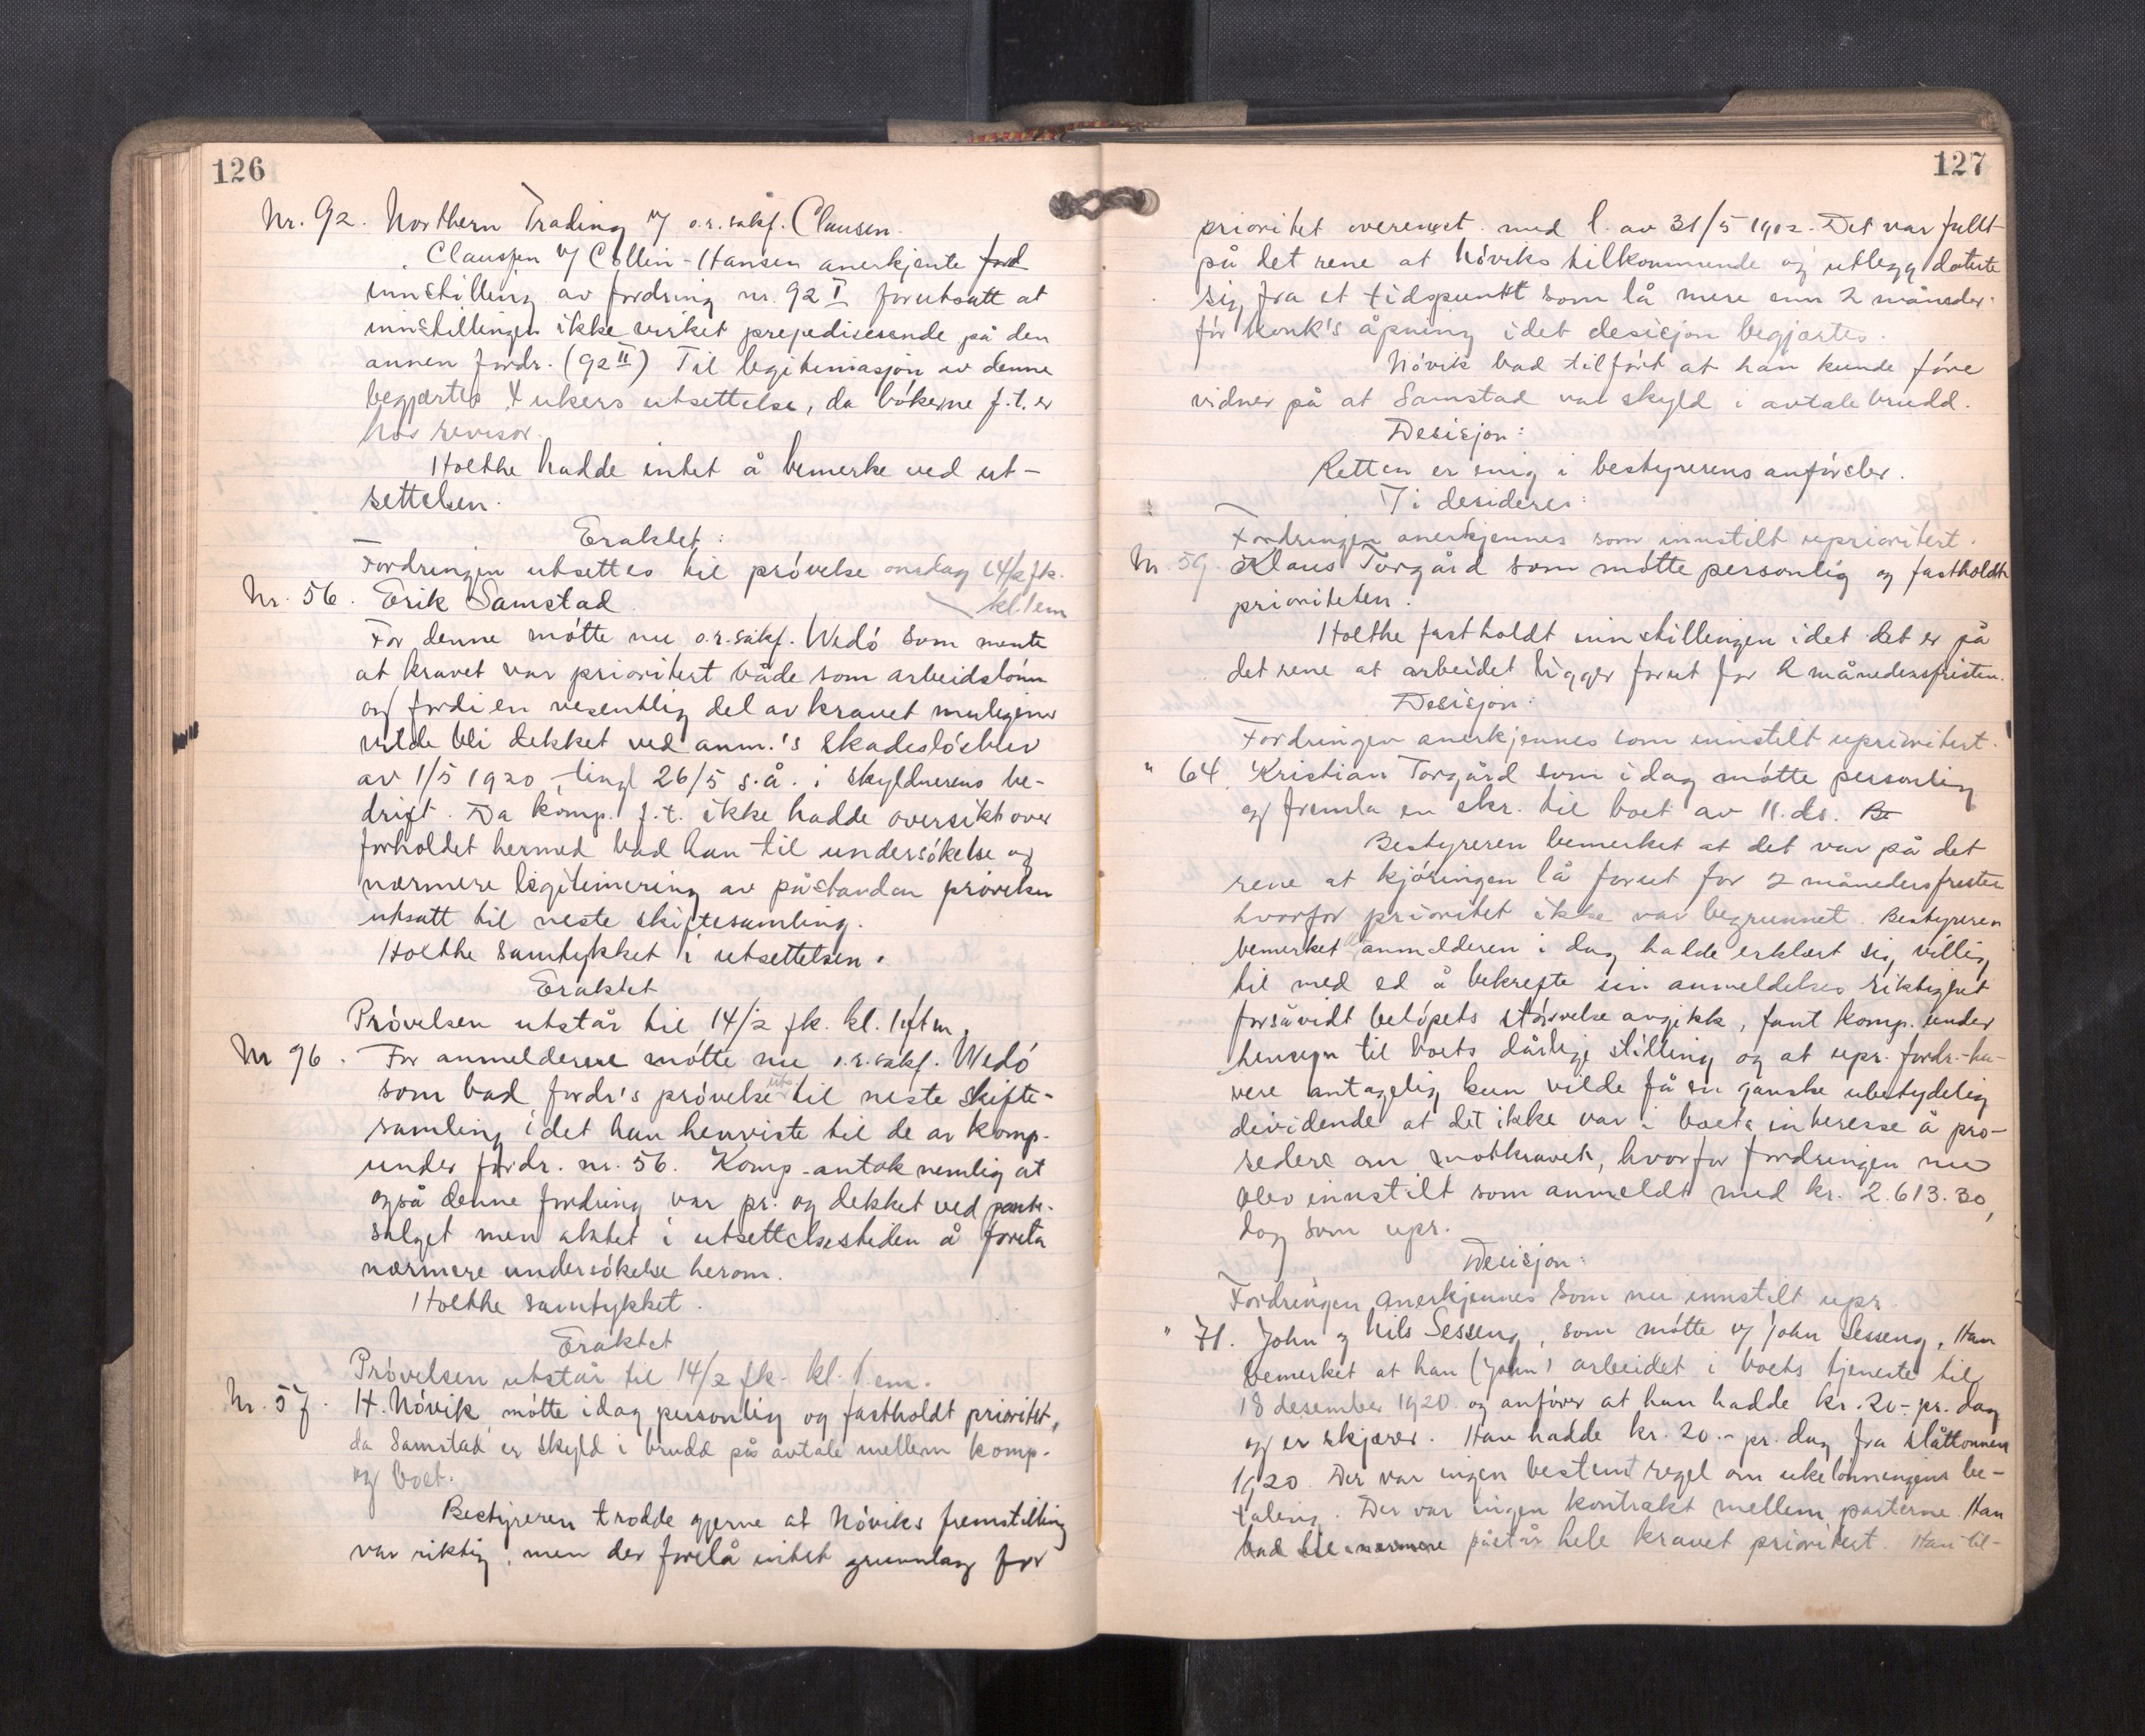 126
Nr. 92. Northern Trading v/ o.r.sakf. Clausen.
Claussen v/ Collin-Hansen anerkjente ford
innstilling av fordring nr. 92 I forutsatt at
innstillingen ikke virket prejudiserende på den
annen fordr. (92 II) Til legitimasjon av denne
begjærtes 4 ukers utsettelse, da bökerne f.t. er
hos revisor.
Holthe hadde intet å bemerke ved ut-
settelsen.
Eraktet:
Fordringen utsettes til prövelse onsdag 14/2 fk.
kl. 1 em
Nr. 56. Erik Samstad
For denne mötte nu o.r.sakf. Wedö som mente
at kravet var prioritert både som arbeidslönn
og fordi en vesentlig del av kravet muligens
vilde bli dekket ved anm.'s skadeslösbrev
av 1/5 1920, tingl 26/5 s.å. i skyldnerens be-
drift. Da komp. f.t. ikke hadde oversikt over
forholdet hermed bad han til undersökelse og
nærmere legitimering av påstanden prövelsen
utsatt til neste skiftesamling.
Holthe samtykket i utsettelsen.
Eraktet
Prövelsen utstår til 14/2 fk. kl. 1 eftm.
Nr 96. For anmelderen mötte nu o.r.sakf. Wedö
som bad fordr's prövelse uts. til neste skifte-
samling idet han henviste til de av komp.
under fordr. nr. 56. Komp. antok nemlig at
også denne fordring var pr. og dekket ved pante-
salget men aktet i utsettelsestiden å foreta
nærmere undersökelse herom.
Holthe samtykket.
Eraktet
Prövelsen utstår til 14/2 fk. kl. 1 em.
Nr. 57. H. Növik mötte idag personlig og fastholdt prioritet,
da Samstad er skyld i brudd på avtale mellem komp.
og boet.
Bestyreren trodde gjerne at Növiks fremstilling
var riktig, men der forelå intet grunnlag for
127
prioritet overenst. med l. av 31/5 1912. Det var fullt
på det rene at Növiks tilkommende og utlegg daterte
sig fra et tidspunkt som lå mere enn 2 måneder
för konk's åpning idet desisjon begjærtes.
Növik bad tilfört at han kunde före
vidner på at Samstad var skyld i avtalebrudd.
Desisjon:
Retten er enig i bestyrerens anförsler.
Ti desideres:
Fordringen anerkjennes som innstilt uprioritert.
Nr. 59. Klaus Torgård som mötte personlig og fastholdt
prioriteten.
Holthe fastholdt innstillingen idet det er på
det rene at arbeidet ligger forut for 2 månedersfristen.
Desisjon:
Fordringen anerkjennes som innstilt uprioritert.
" 64. Kristian Torgård som idag mötte personlig
og fremla en skr. til boet av 11. ds. Be
Bestyreren bemerket at det var på det
rene at kjöringen lå forut for 2 månedersfristen
hvorfor prioritet ikke var begrunnet. Bestyreren
bemerket anmelderen i dag hadde erklært sig villig
til med ed å bekrefte sin anmeldelses riktighet
forsåvidt belöpets störrelse avgikk, fant komp. under
hensyn til boets dårlige stilling og at upr. fordr.-ha-
vere antagelig kun vilde få en ganske ubetydelig
dividende at det ikke var i boets interesse å pro-
sedere om motkravet, hvorfor fordringen nu
blev innstilt som anmeldt med kr. 2.613.30,
dog som upr.
Desisjon:
Fordringen anerkjennes som nu innstilt upr.
" 71. John og Nils Sesseng, som mötte v/ John Sesseng. Han
bemerket at han (John) arbeidet i boets tjeneste til
18 desember 1920. og anförer at han hadde kr. 20.- pr. dag
og er skjærer. Han hadde kr. 20.- pr. dag fra slåttonnen
1920. Der var ingen bestemt regel om ukelönningens be-
taling. Der var ingen kontrakt mellem parterne. Han
bad påstår hele kravet prioritert. Han til-